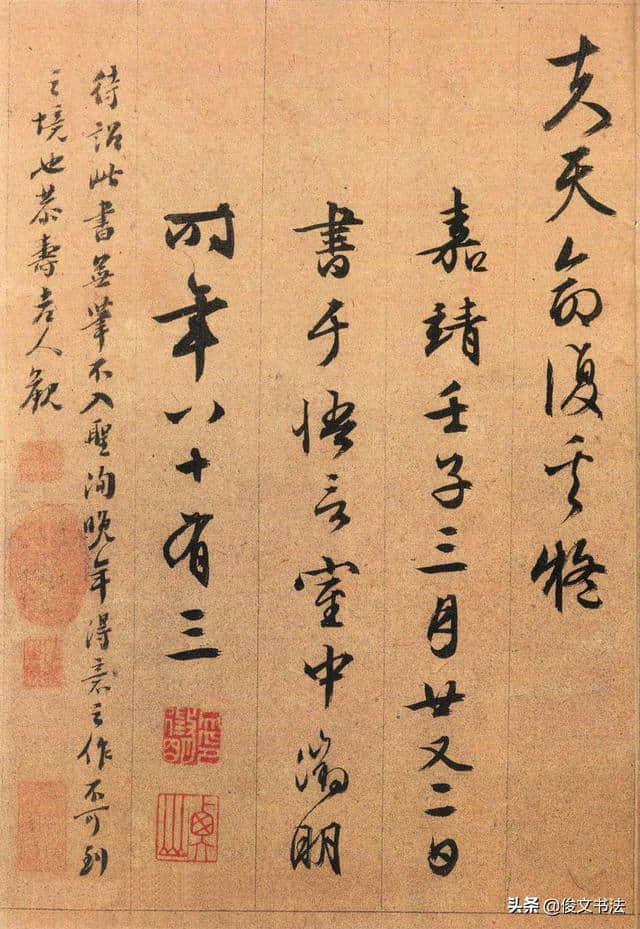 夫天命復奚疑
嘉靖壬子三月廿又二日
書于悟言室中徵明
時年八十有三
待詔此書無筆不入聖洵晚年得意之作不可到
之境也恭壽老人觀
头条 @俊文书法